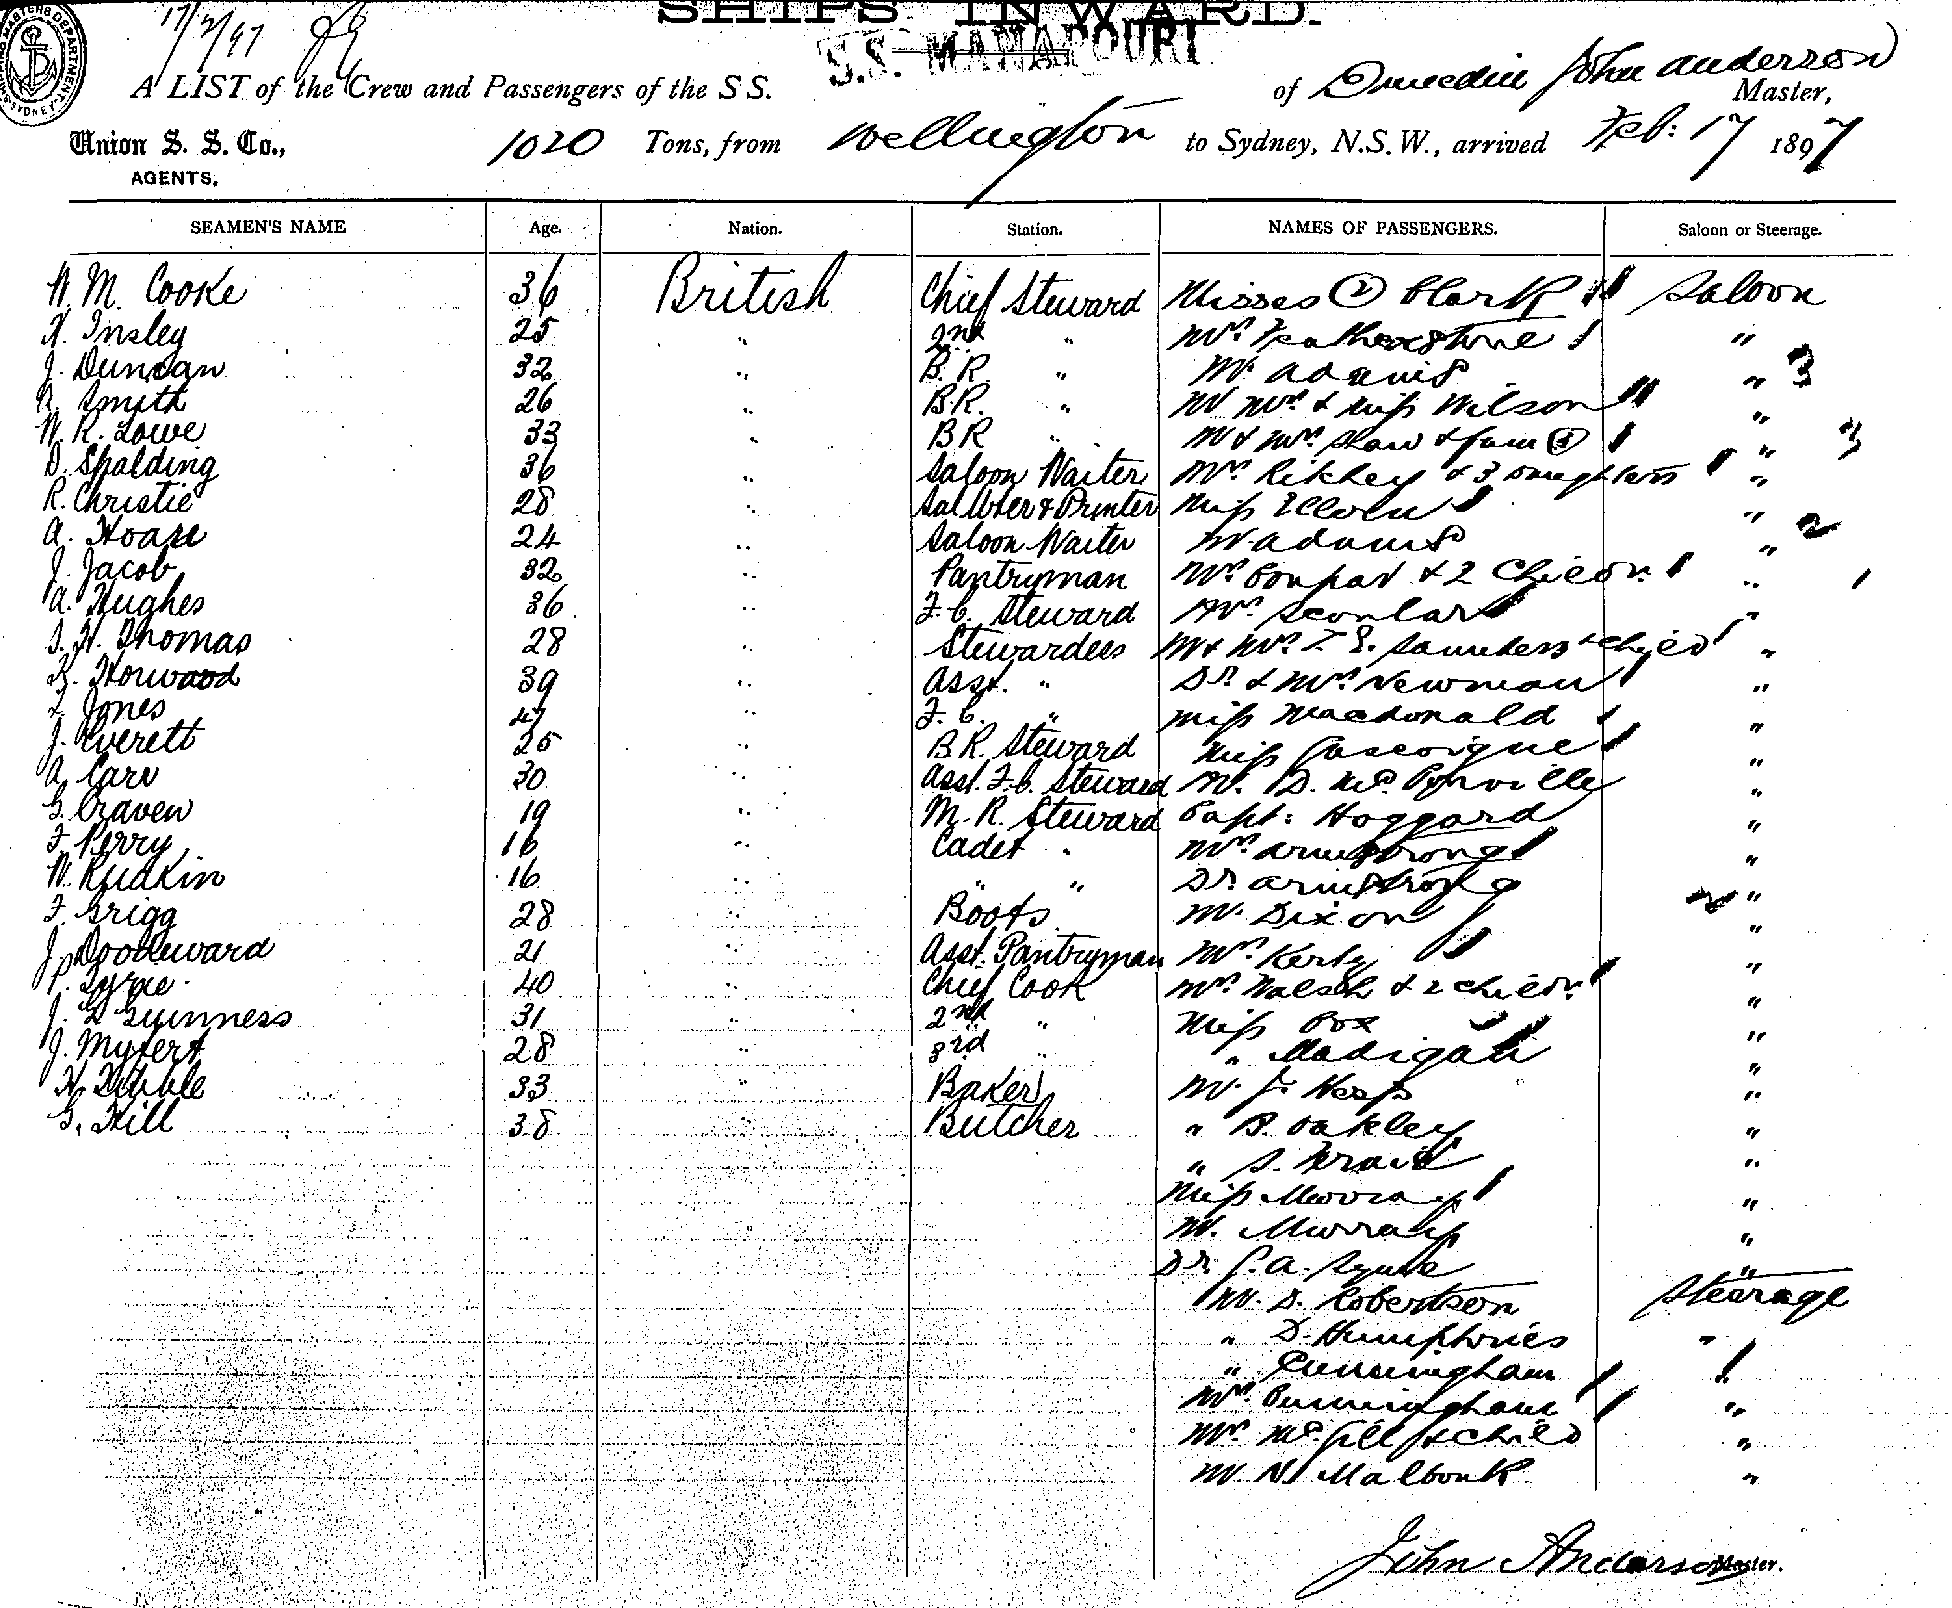 SHIPS INWARD.
17/2/97
S.S. MANAPOURI
A LIST of the Crew and Passengers of the S S. of Dunedin John Anderson Master,
Union S. S. Co., 1020 Tons, from Wellington to Sydney, N.S.W., arrived Feb: 17 1897
AGENTS,
SEAMEN'S NAME Age. Nation. Station. NAMES OF PASSENGERS. Saloon or Steerage.
W. M. Cooke 36 British Chief Steward Misses (2) Clark Saloon
H. Insley 25 " 2nd " Mrs Featherstone "
J. Duncan 32 " B. R " Mr Adams " 3
R. Smith 26 " B.R. " Mr Mrs & Miss Wilson "
W. R. Lowe 33 " B R " Mr & Mrs Shaw & fam " 3
D. Spalding 36 " Saloon Waiter Mrs & 3 Daughters "
R. Christie 28 " Sal Wter & Printer Miss "
A. Hoare 24 " Saloon Waiter Mr Adams " 2
J. Jacob 32 " Pantryman Mrs & 2 Childn "
A. Hughes 36 " F. C. Steward Mrs "
S. H. Thomas 28 " Stewardess Mr & Mrs T. E. Saunders & child "
Horwood 39 " Asst. " Dr & Mrs Newman "
Jones 47 " F. C. " Miss Macdonald "
J. Everett 25 " B.R. Steward Miss Gascoigne "
A. Carr 30 " Asst. F.C. Steward Mr. D. "
G. Craven 19 " M. R. Steward Capt: Hoggard "
F. Perry 16 " Cadet " Mrs Armstrong "
W. Rudkin 16 " " " Dr Armstrong "
F. Grigg 28 " Boots Mr. Dixon "
J. 21 " Asst. Pantryman Mrs Kerby "
P. 40 " Chief Cook Mrs Walsh & 2 childn "
J. Guinness 31 " 2nd " Miss Cox "
J. 28 " 3rd " " Madigan "
H. 33 " Baker Mr. J. "
G. Hill 38 Butcher " B. Oakley "
" S. "
Miss Murray "
Mr. Murray "
Dr. "
Mr. D. Robertson Steerage
" D. Humphries "
" Cunningham
Mrs Cunningham "
Mrs McGill & child "
Mr N. "
John Anderson Master.